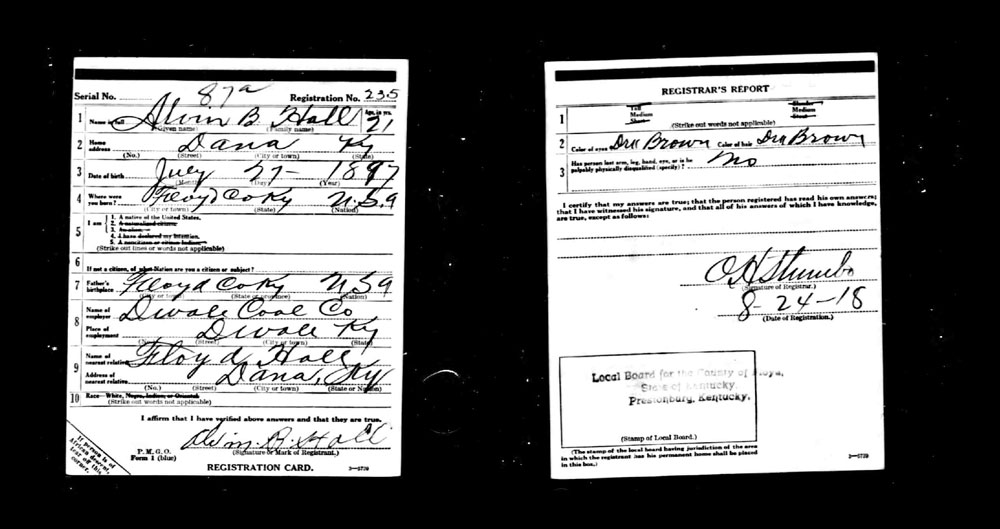 Serial No. 87a Registration No. 235
1 Name in full Alvin B Hall Age, in yrs. 21
(Given name) (Family name)
2 Home address Dana Ky
(No.) (Street) (City or town) (State)
3 Date of birth July 27 - 1897
(Month) (Day) (Year)
4 Where were you born? Floyd Co Ky U.S.a
(City or town) (State) (Nation)
5 I am
1. A native of the United States.
2. A naturalized citizen.
3. An alien.
4. I have declared my intention.
5. A noncitizen or citizen Indian.
(Strike out lines or words not applicable)
6 If not a citizen, of what Nation are you a citizen or subject?
7 Father's birthplace Floyd Co Ky U S a
(City or town) (State or province) (Nation)
8 Name of employer Coal Co
Place of employment Ky
(No.) (Street) (City or town) (State)
9 Name of nearest relative Floyd Hall
Address of nearest relative Dana, Ky
(No.) (Street) (City or town) (State or Nation)
10 Race—White, Negro, Indian, or Oriental
(Strike out words not applicable)
I affirm that I have verified above answers and that they are true.
Alvin. B. Hall
(Signature or Mark of Registrant.)
P.M.G.O.
Form 1 (blue)
REGISTRATION CARD. 3—5729
If person is of
African descent,
tear off this
corner.
REGISTRAR'S REPORT
1 Tall Medium Short Slender Medium Stout
(Strike out words not applicable)
2 Color of eyes Brown Color of hair Brown
3 Has person lost arm, leg, hand, eye, or is he
palpably physically disqualified (specify)? No
I certify that my answers are true; that the person registered has read his own answers;
that I have witnessed his signature, and that all of his answers of which I have knowledge,
are true, except as follows:
O H Stumbo
(Signature of Registrar.)
8-24-18
(Date of Registration.)
Local Board for the County of Floyd,
State of Kentucky.
Prestonburg, Kentucky.
(Stamp of Local Board.)
(The stamp of the local board having jurisdiction of the area
in which the registrant has his permanent home shall be placed
in this box.) 3—5729